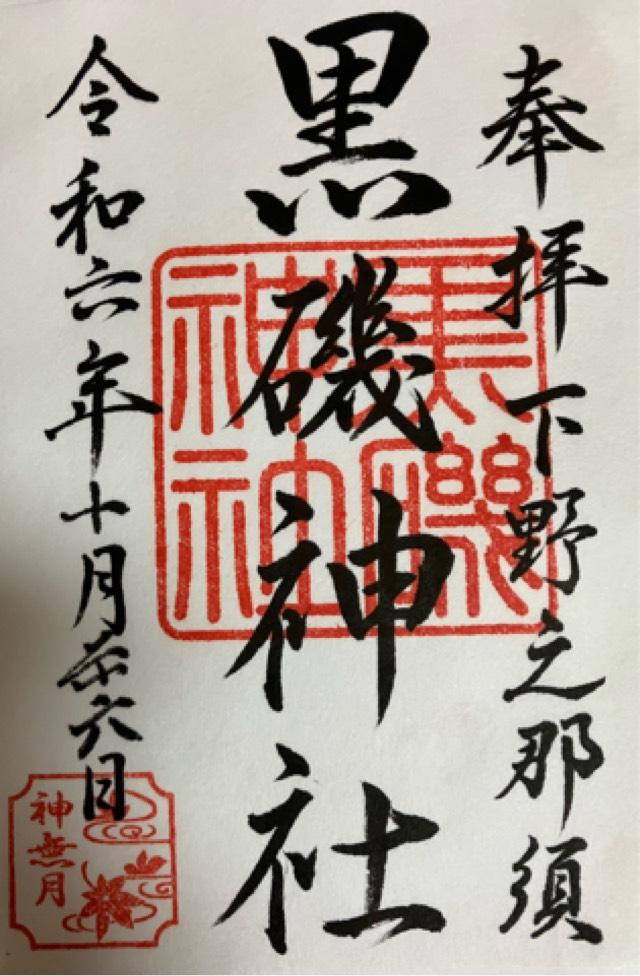 奉拝下野之那須
黒磯神社
黒磯
神社
令和六年十月廿六日
神無月